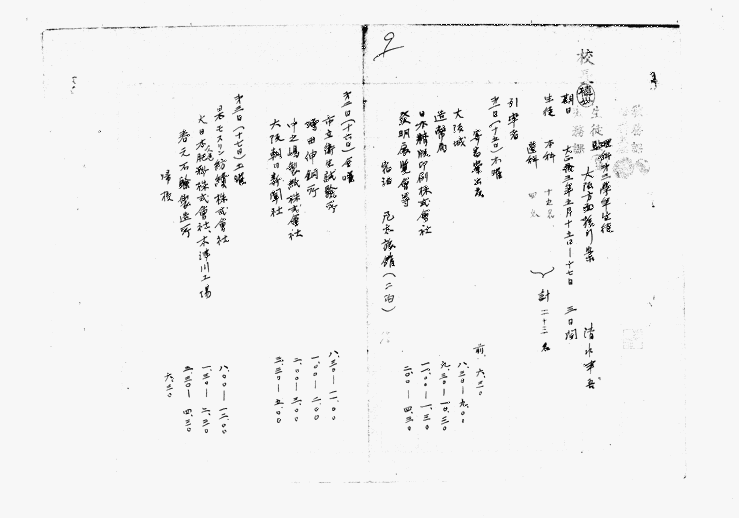 9
校長
理科第三學年生徒
大阪方面旅行案
清水
期日 大正十三年五月十五日—十七日 三日間
生徒 本科 十七名
選科 四名
計 二十二名
引率者
第一日(十五日)木曜
寄宿舎出発 前 六.三〇
大阪城 八.三〇—九.〇〇
造幣局 九.三〇—一〇.三〇
日本精版印刷株式會社 一一.〇〇—一.三〇
發明展覽會等 二.〇〇—四.三〇
宿泊 旅館(二泊)
第二日(十六日)金曜
市立衛生試驗所 八.三〇—一一.〇〇
増田伸銅所 一.〇〇—二.〇〇
中之嶋製紙株式會社 二.〇〇—三.〇〇
大阪朝日新聞社 三.三〇—五.〇〇
第三日(十七日)土曜
日本モスリン紡績株式會社 八.〇〇—一二.〇〇
大日本肥料株式會社、木津川工場 一.三〇—二.三〇
春元石鹸製造所 三.三〇—四.三〇
帰校 六.三〇